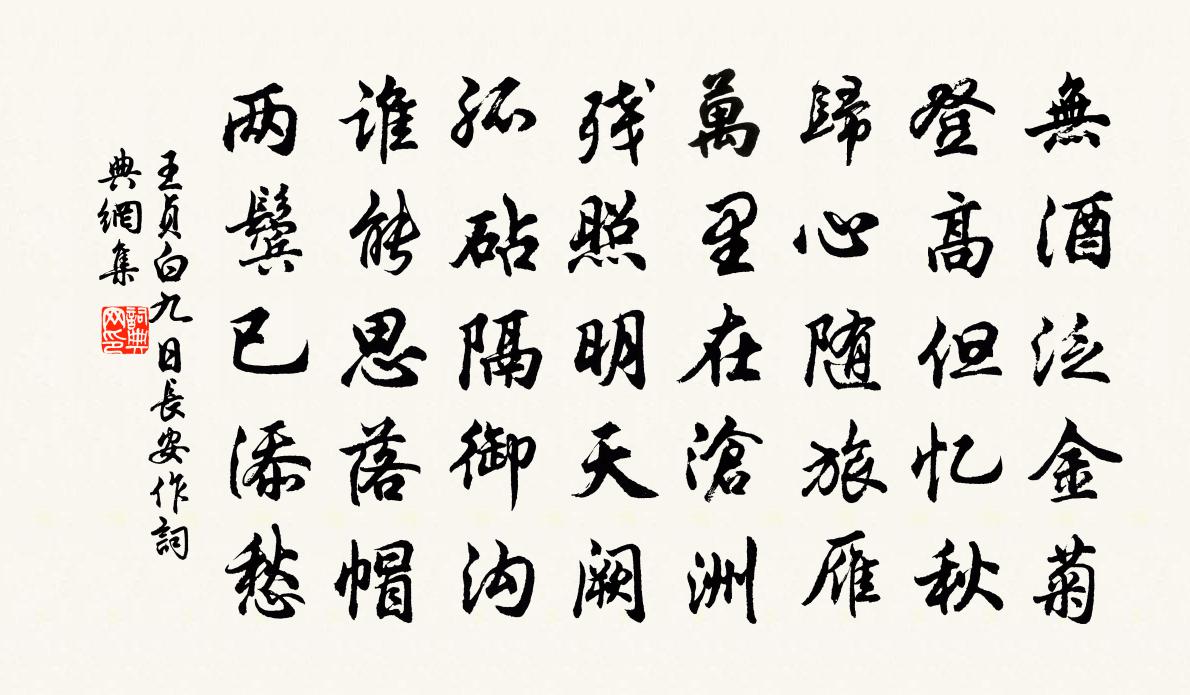 無酒泛金菊
登高但忆秋
歸心随旅雁
萬里在滄洲
残照明天阙
孤砧隔御沟
谁能思落帽
两鬓已添愁
王貞白九日長安作詞
典網集
詞典
网印